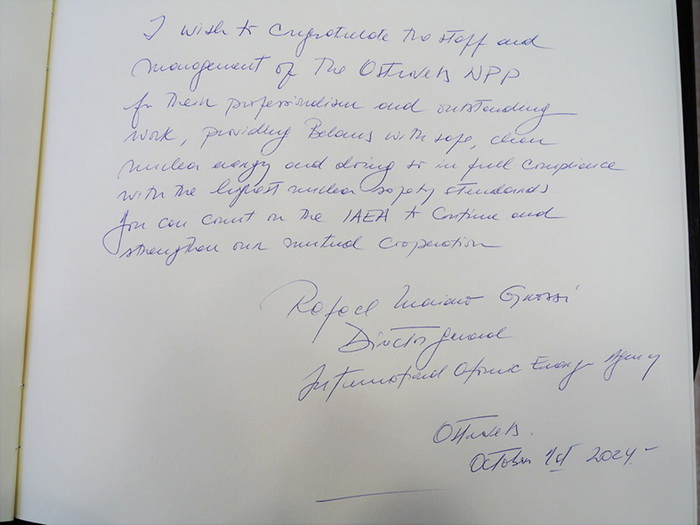 I wish to congratulate the staff and
management of the Ostrovets NPP
for their professionalism and outstanding
work, providing Belarus with safe, clean
nuclear energy and doing so in full compliance
with the highest nuclear safety standards
You can count on the IAEA to continue and
strengthen our mutual cooperation
Rafael Mariano Grossi
Director General
International Atomic Energy Agency
Ostrovets.
October 1st 2024-